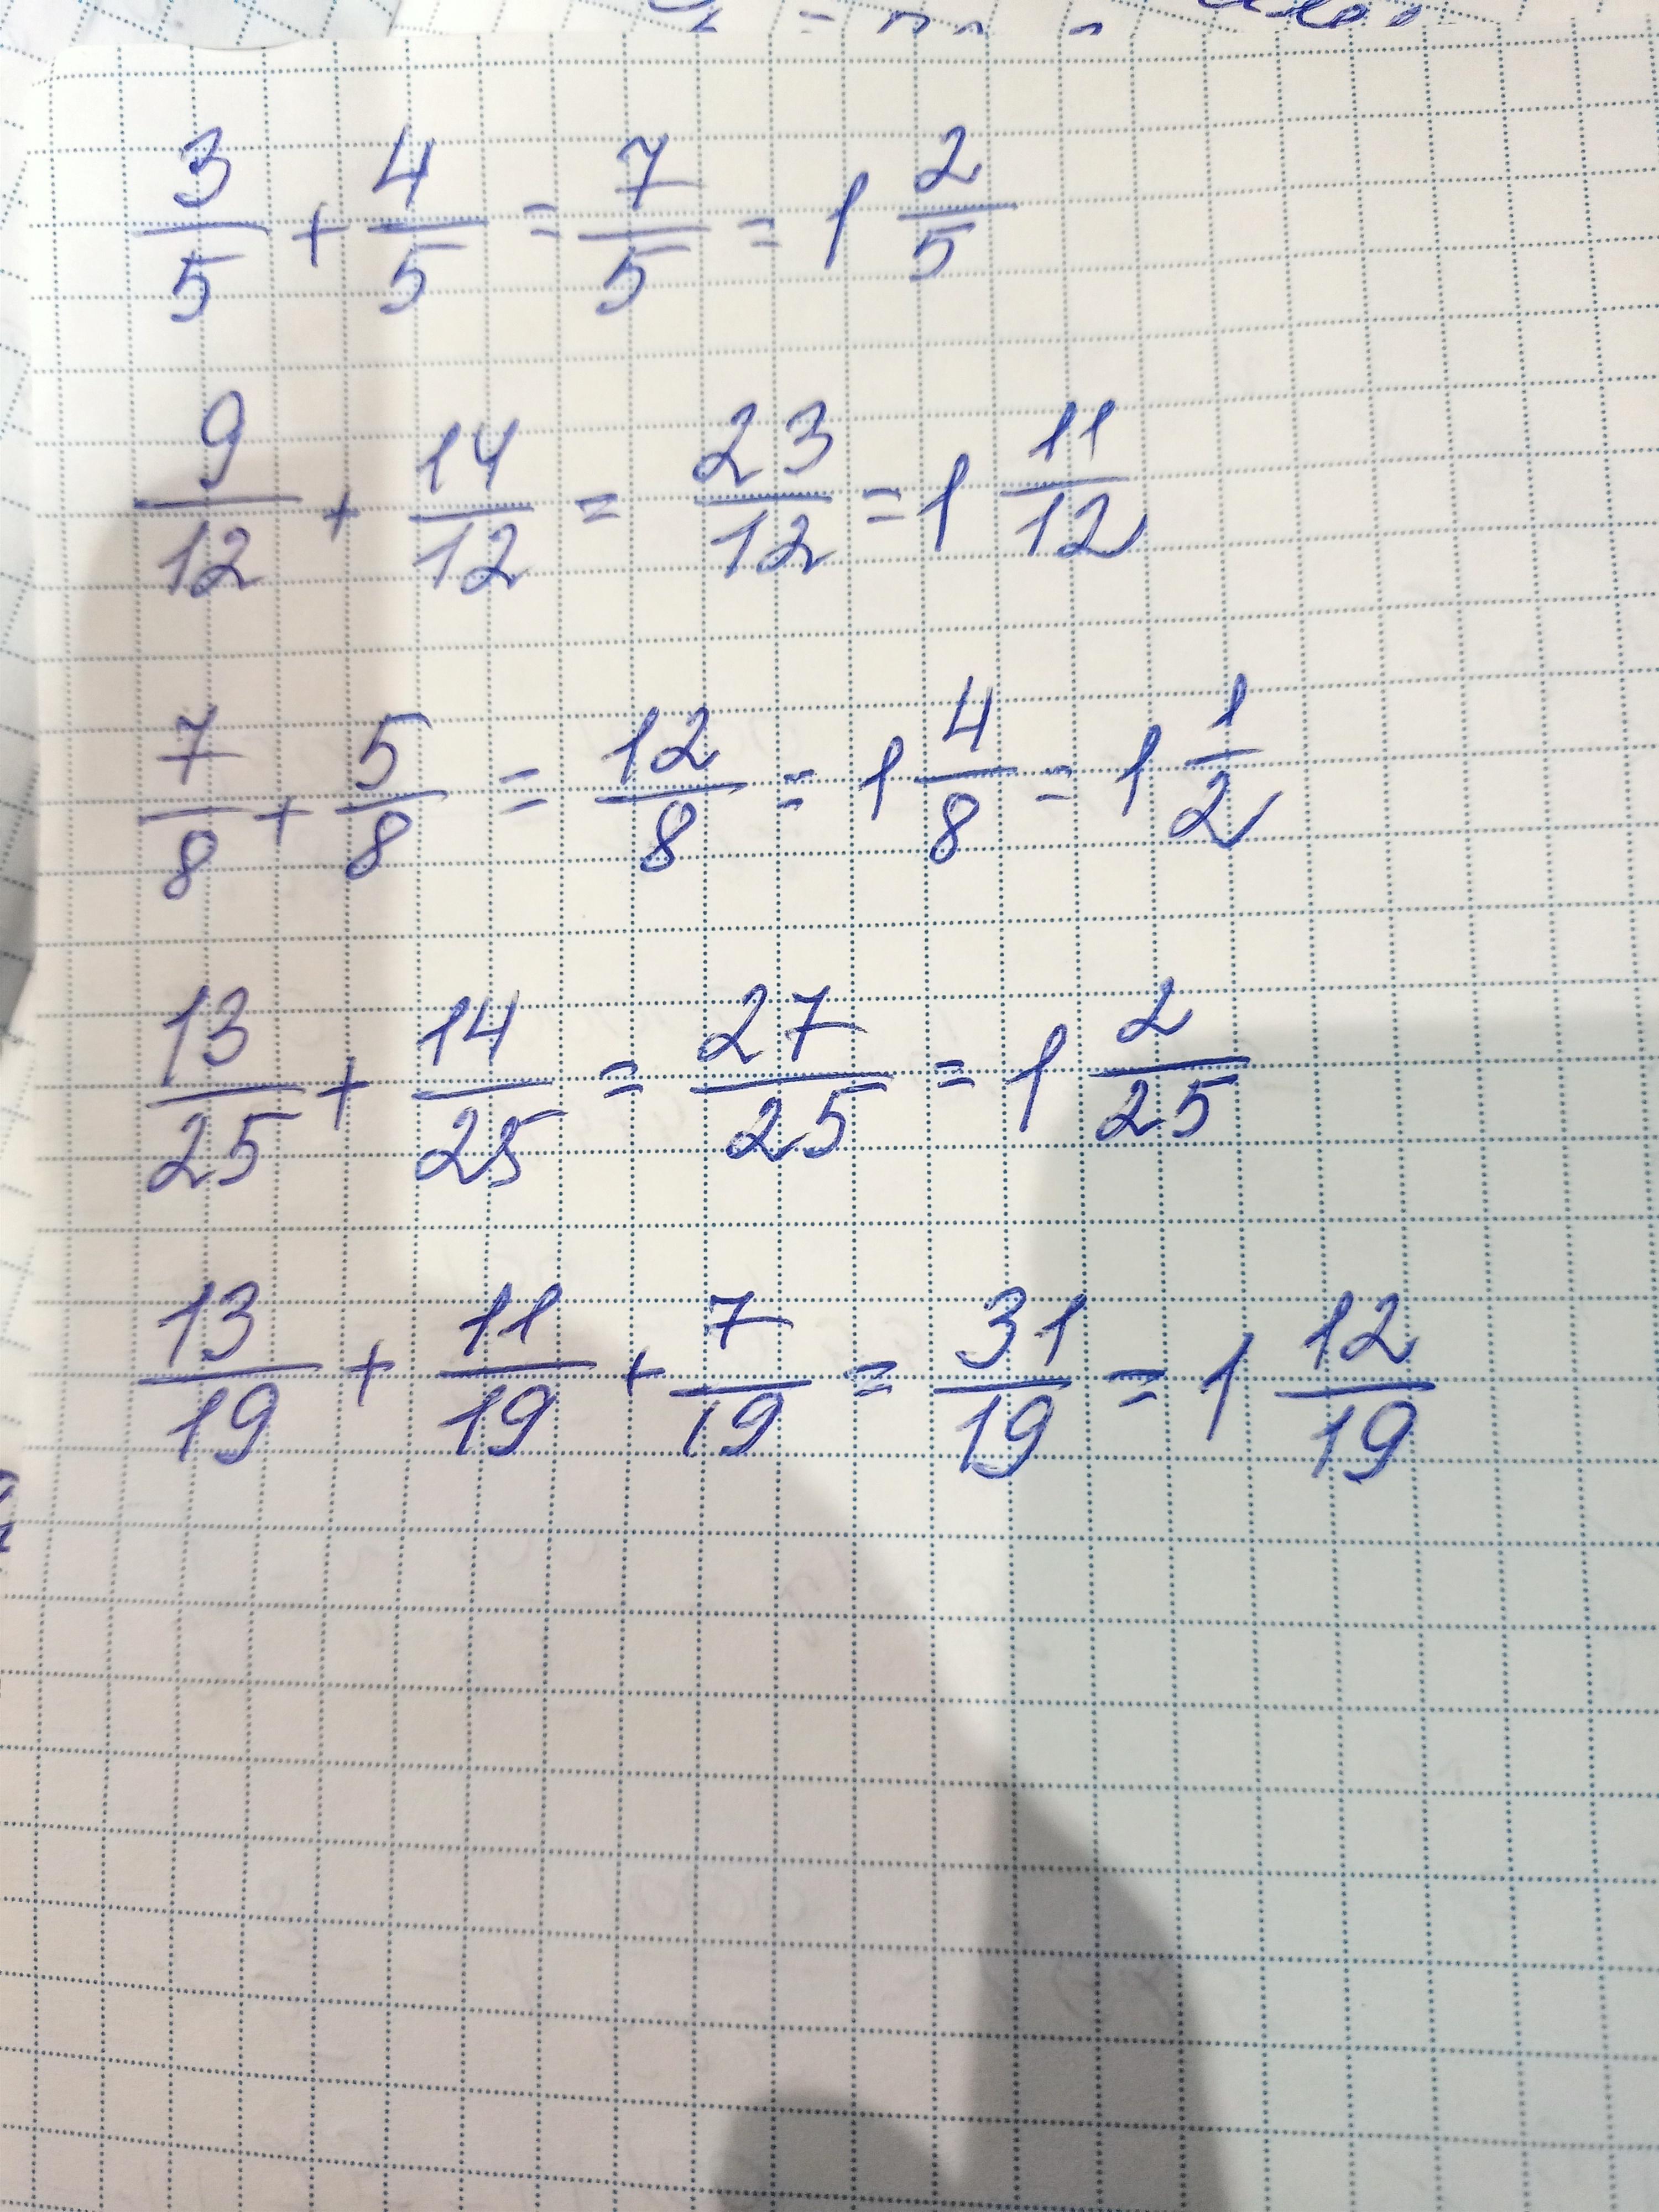 3/5 + 4/5 = 7/5 = 1 2/5
9/12 + 14/12 = 23/12 = 1 11/12
7/8 + 5/8 = 12/8 = 1 4/8 = 1 1/2
13/25 + 14/25 = 27/25 = 1 2/25
13/19 + 11/19 + 7/19 = 31/19 = 1 12/19